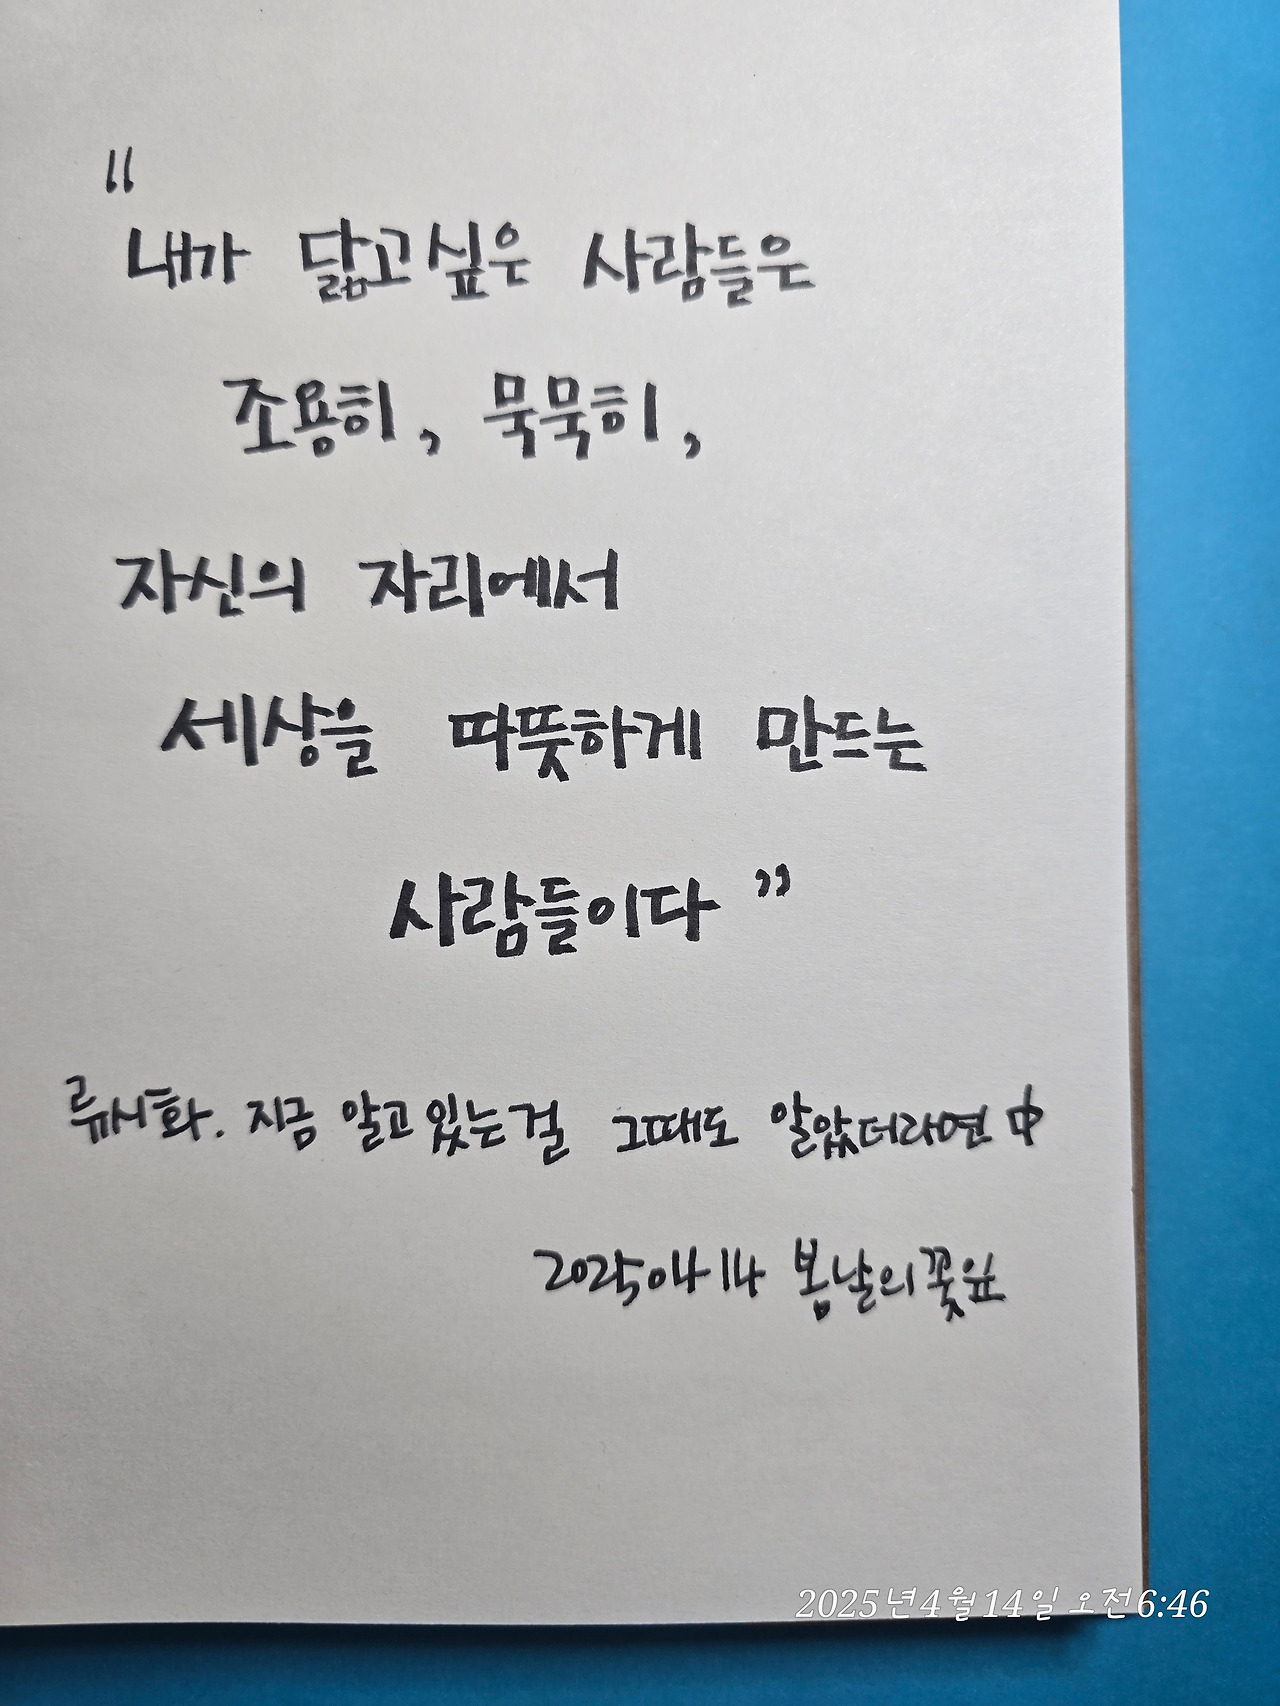 "
내가 닮고싶은 사람들은
조용히, 묵묵히,
자신의 자리에서
세상을 따뜻하게 만드는
사람들이다 "
류시화. 지금 알고있는걸 그때도 알았더라면 中
20250414 봄날의꽃잎
2025년4월14일 오전6:46